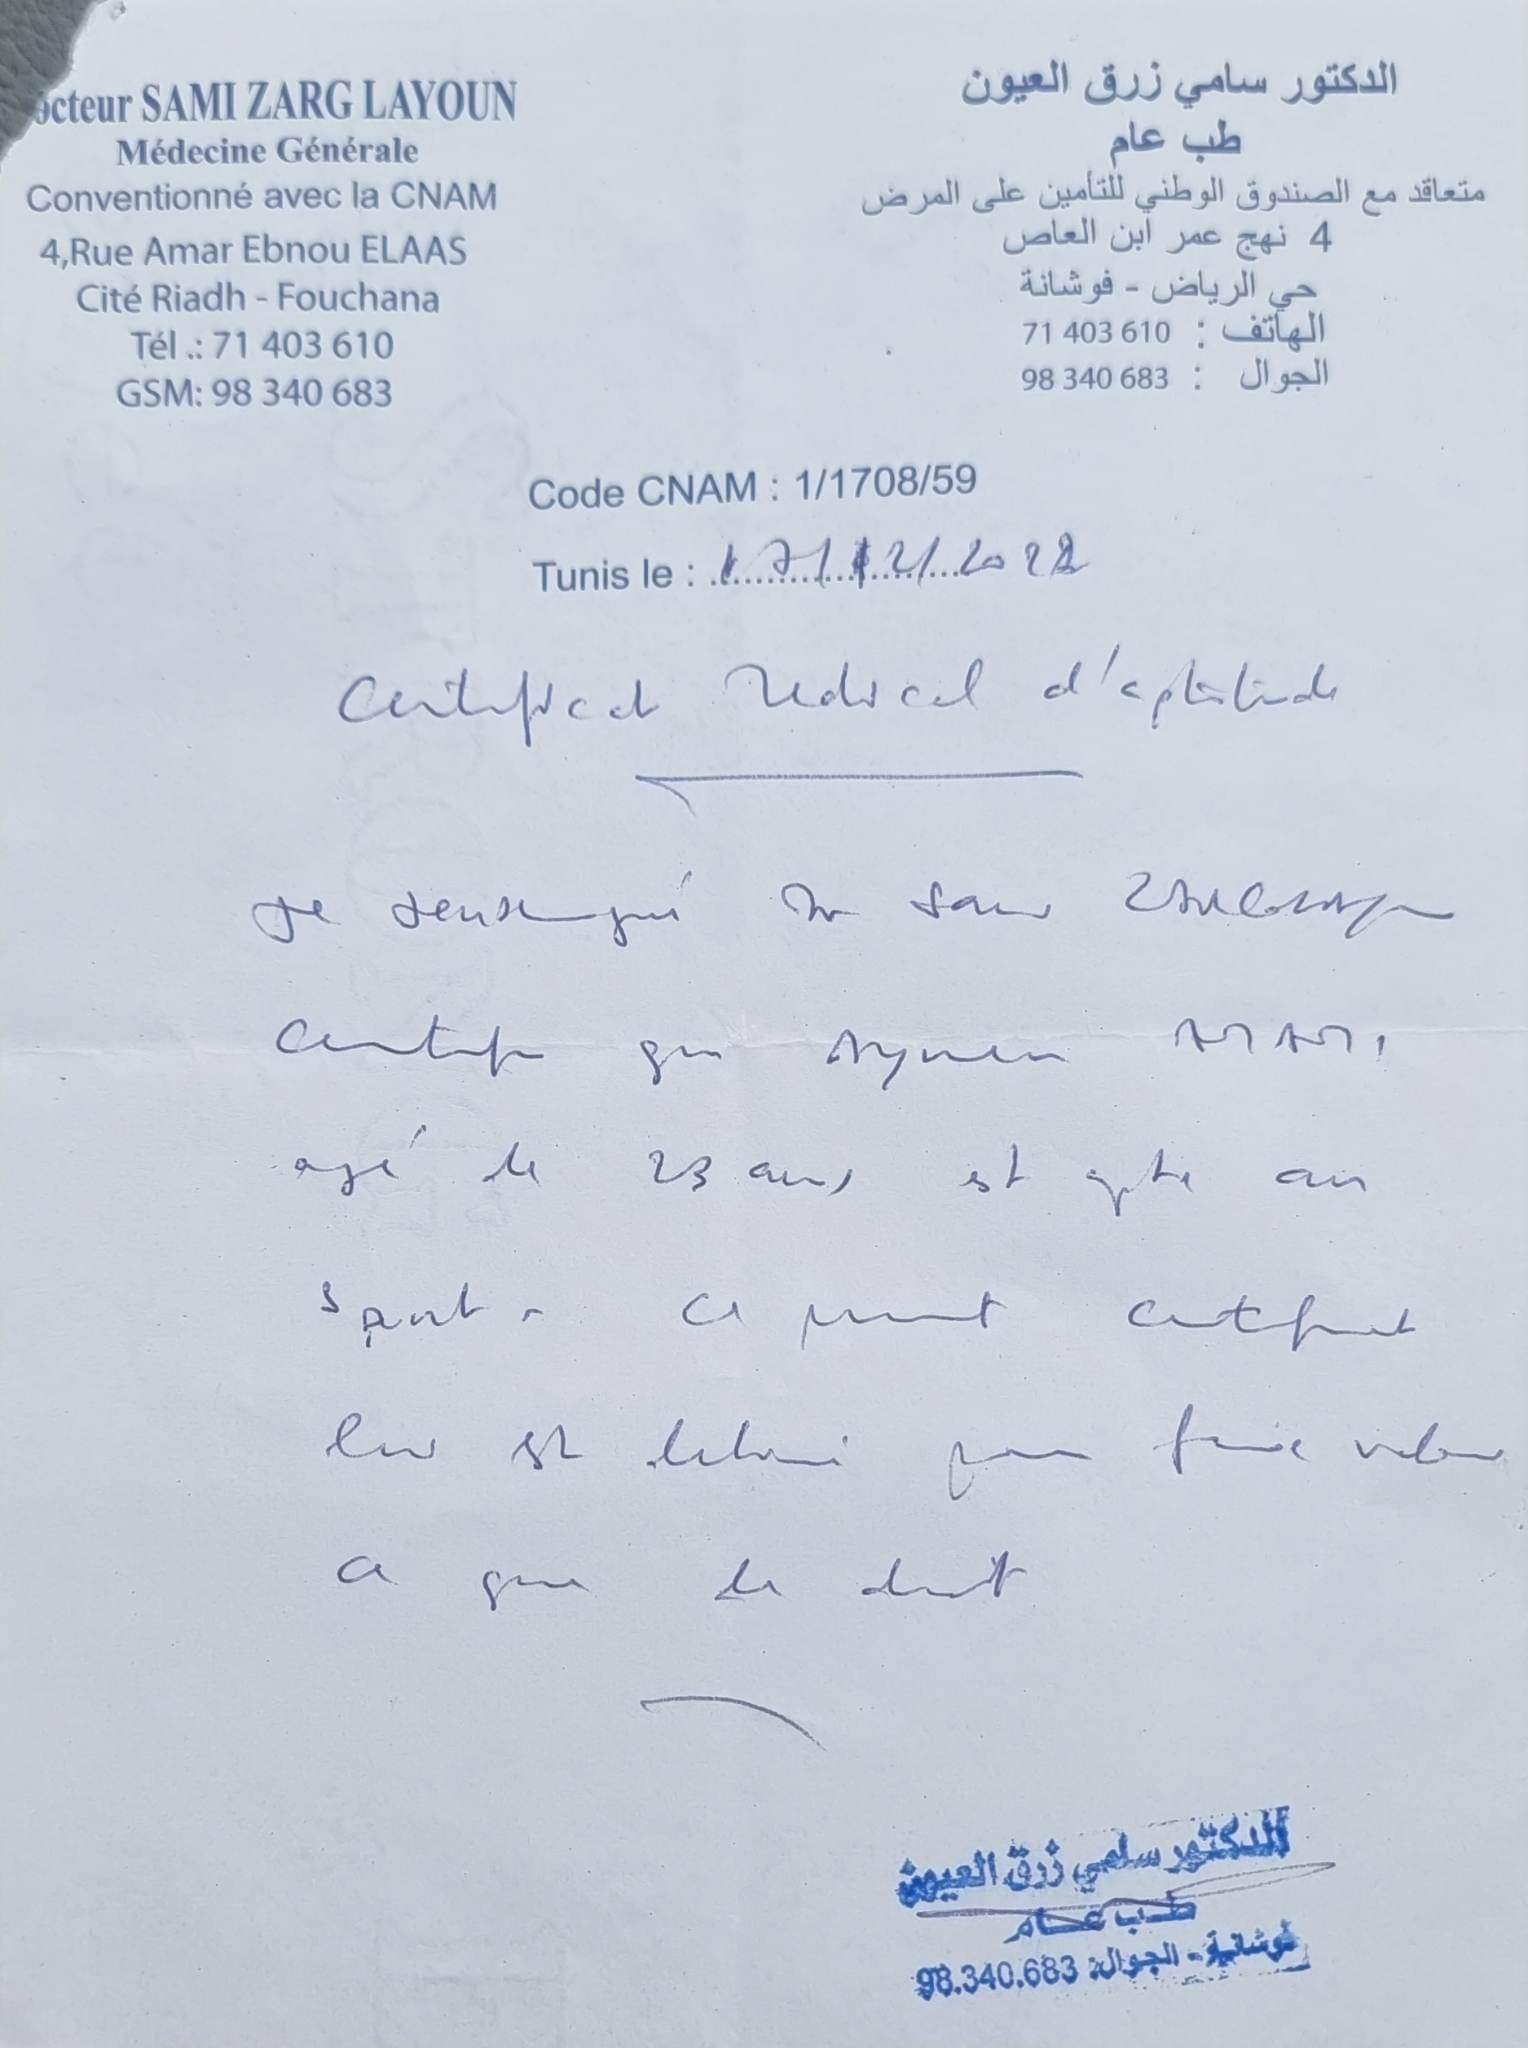 octeur SAMI ZARG LAYOUN
Médecine Générale
Conventionné avec la CNAM
4,Rue Amar Ebnou ELAAS
Cité Riadh - Fouchana
Tél .: 71 403 610
GSM: 98 340 683
الدكتور سامي زرق العيون
طب عام
متعاقد مع الصندوق الوطني للتأمين على المرض
4 نهج عمر ابن العاص
حي الرياض - فوشانة
الهاتف : 71 403 610
الجوال : 98 340 683
Code CNAM : 1/1708/59
Tunis le : 17/12/2022
Certificat Médical d'aptitude
Je soussigné Dr Sami
Certifie que Aymen
agé de 23 ans est apte au
sport - Ce présent certificat
lui est délivré pour faire valoir
a que de droit
الدكتور سامي زرق العيون
طب عام
فوشانة - الجوال: 98.340.683